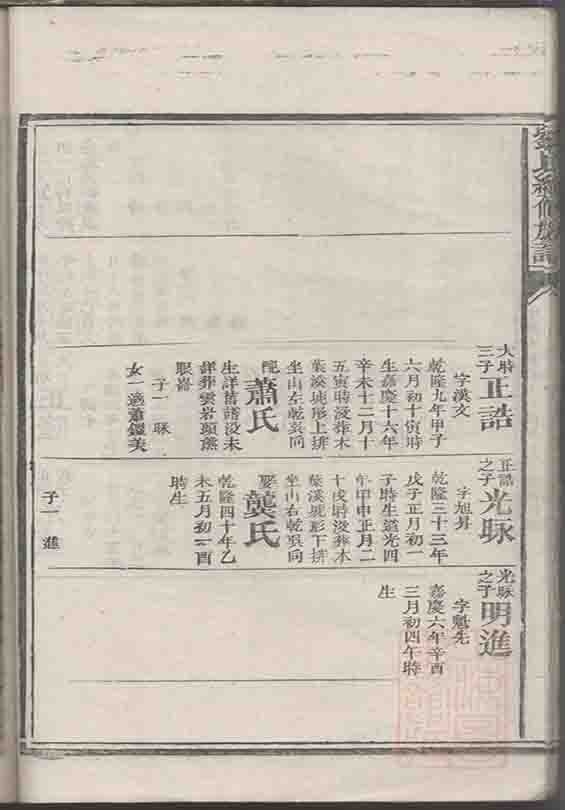 大
三子
正誥
字漢文
乾隆九年甲子
六月初十寅時
生嘉慶十六年
辛未十二月十
五寅時沒葬木
葉溪琥形上排
坐山左乾巽向
配
蕭氏
生詳舊譜沒未
詳葬張岩頭鷹
眼嵜
子一
女一適蕭鑑美
正誥
之子
光
字旭昇
乾隆三十三年
戊子正月初一
子時生道光四
年甲申正月二
十戌時沒葬木
葉溪琥形下排
坐山右乾巽向
娶
龔氏
乾隆四十年乙
未五月初一酉
時生
子一 進
光
之子
明進
字魁先
嘉慶六年辛酉
三月初四午時
生